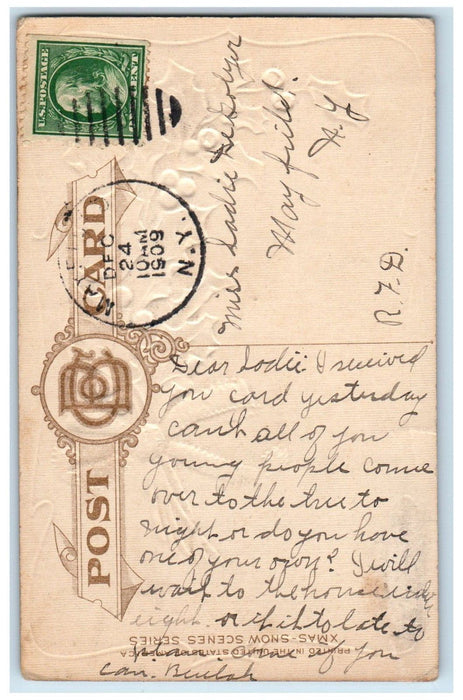 U.S. POSTAGE
ONE CENT
POST CARD
MAYFIELD
N.Y.
DEC
24
10 AM
1909
Miss Sadie DeGolyer
Mayfield.
N. Y
R. F. D.
Dear Sadie: I received
you card yesterday
cant all of you
young people come
over to the tree to
night or do you have
one of your own? I will
wait to the house
eight. or if it to late to
of you
can. Beulah
PRINTED IN THE UNITED STATES
XMAS-SNOW SCENES SERIES